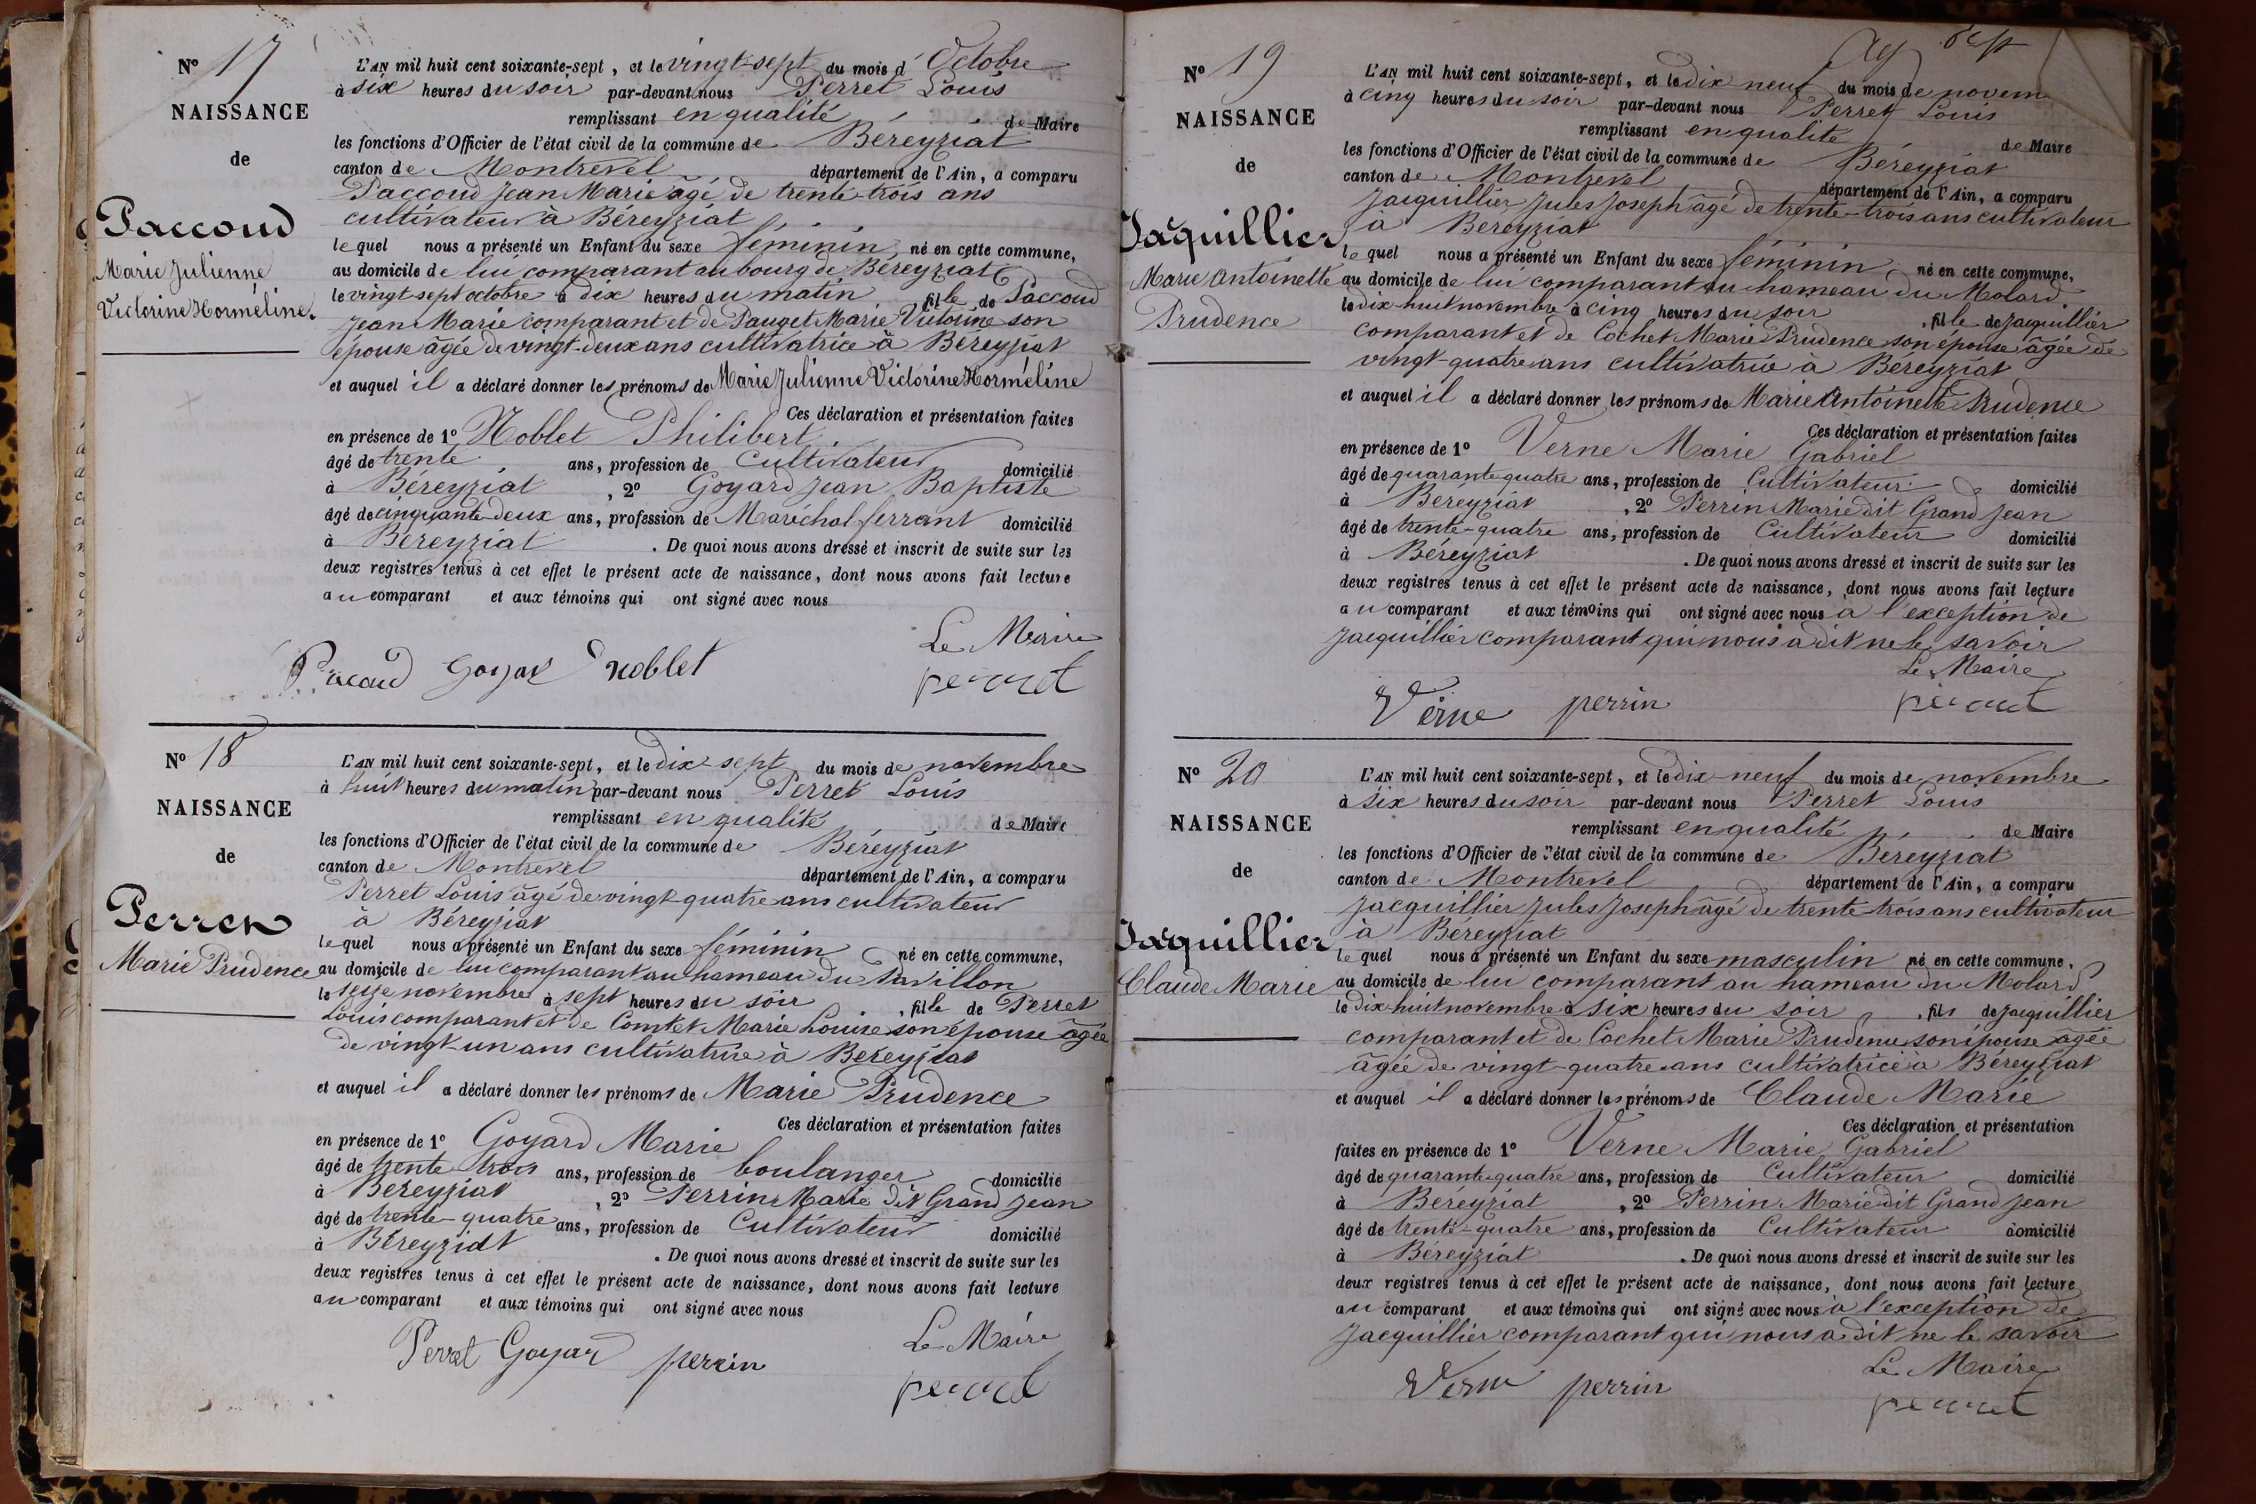 N° 17
NAISSANCE
de
Paccoud
Marie Julienne
Victorine Horméline.
L'AN mil huit cent soixante-sept, et le vingt-sept du mois d'Octobre
à six heures du soir par-devant nous Perret Louis
remplissant en qualité de Maire
les fonctions d'Officier de l'état civil de la commune de Béreyziat
canton de Montrevel département de l'Ain, a comparu
Paccoud Jean Marie âgé de trente-trois ans
cultivateur à Béreyziat
le quel nous a présenté un Enfant du sexe féminin né en cette commune,
au domicile de lui comparant au bourg de Béreyziat
le vingt-sept octobre à dix heures du matin, fille de Paccoud
Jean Marie comparant et de Pauget Marie Victorine son
épouse âgée de vingt-deux ans cultivatrice à Béreyziat
et auquel il a déclaré donner les prénoms de Marie Julienne Victorine Horméline
Ces déclaration et présentation faites
en présence de 1° Noblet Philibert
âgé de trente ans, profession de Cultivateur domicilié
à Béreyziat, 2° Goyard Jean Baptiste
âgé de cinquante-deux ans, profession de Maréchal ferrant domicilié
à Béreyziat. De quoi nous avons dressé et inscrit de suite sur les
deux registres tenus à cet effet le présent acte de naissance, dont nous avons fait lecture
au comparant et aux témoins qui ont signé avec nous
Le Maire
Pacoud Goyar noblet perret
N° 18
NAISSANCE
de
Perret
Marie Prudence
L'AN mil huit cent soixante-sept, et le dix-sept du mois de novembre
à huit heures du matin par-devant nous Perret Louis
remplissant en qualité de Maire
les fonctions d'Officier de l'état civil de la commune de Béreyziat
canton de Montrevel département de l'Ain, a comparu
Perret Louis âgé de vingt-quatre ans cultivateur
à Béreyziat
le quel nous a présenté un Enfant du sexe féminin né en cette commune,
au domicile de lui comparant au hameau du Pavillon
le seize novembre à sept heures du soir, fille de Perret
Louis comparant et de Comtet Marie Louise son épouse âgée
de vingt-un ans cultivatrice à Béreyziat
et auquel il a déclaré donner les prénoms de Marie Prudence
Ces déclaration et présentation faites
en présence de 1° Goyard Marie
âgé de trente trois ans, profession de boulanger domicilié
à Béreyziat, 2° Perrin Marie dit Grand Jean
âgé de trente-quatre ans, profession de Cultivateur domicilié
à Béreyziat. De quoi nous avons dressé et inscrit de suite sur les
deux registres tenus à cet effet le présent acte de naissance, dont nous avons fait lecture
au comparant et aux témoins qui ont signé avec nous
Le Maire
Perret Goyar perrin perret
sept
N° 19
NAISSANCE
de
Jacquillier
Marie Antoinette
Prudence
L'AN mil huit cent soixante-sept, et le dix neuf du mois de novem
à cinq heures du soir par-devant nous Perret Louis
remplissant en qualité de Maire
les fonctions d'Officier de l'état civil de la commune de Béreyziat
canton de Montrevel département de l'Ain, a comparu
Jacquillier Jules Joseph âgé de trente-trois ans cultivateur
à Béreyziat
le quel nous a présenté un Enfant du sexe féminin, né en cette commune,
au domicile de lui comparant au hameau du Molard
le dix-huit novembre à cinq heures du soir, fille de Jacquillier
comparant et de Cochet Marie Prudence son épouse âgée de
vingt-quatre ans cultivatrice à Béreyziat
et auquel il a déclaré donner les prénoms de Marie Antoinette Prudence
Ces déclaration et présentation faites
en présence de 1° Verne Marie Gabriel
âgé de quarante-quatre ans, profession de Cultivateur domicilié
à Béreyziat, 2° Perrin Marie dit Grand Jean
âgé de trente-quatre ans, profession de Cultivateur domicilié
à Béreyziat. De quoi nous avons dressé et inscrit de suite sur les
deux registres tenus à cet effet le présent acte de naissance, dont nous avons fait lecture
au comparant et aux témoins qui ont signé avec nous à l'exception de
Jacquillier comparant qui nous a dit ne le savoir
Le Maire
Verne perrin perret
N° 20
NAISSANCE
de
Jacquillier
Claude Marie
L'AN mil huit cent soixante-sept, et le dix-neuf du mois de novembre
à six heures du soir par-devant nous Perret Louis
remplissant en qualité de Maire
les fonctions d'Officier de l'état civil de la commune de Béreyziat
canton de Montrevel département de l'Ain, a comparu
Jacquillier Jules Joseph âgé de trente-trois ans cultivateur
à Béreyziat
le quel nous a présenté un Enfant du sexe masculin né en cette commune,
au domicile de lui comparant au hameau du Molard
le dix-huit novembre à six heures du soir, fils de Jacquillier
comparant et de Cochet Marie Prudence son épouse âgée
âgée de vingt-quatre ans cultivatrice à Béreyziat
et auquel il a déclaré donner les prénoms de Claude Marie
Ces déclaration et présentation
faites en présence de 1° Verne Marie Gabriel
âgé de quarante-quatre ans, profession de Cultivateur domicilié
à Béreyziat, 2° Perrin Marie dit Grand Jean
âgé de trente-quatre ans, profession de Cultivateur domicilié
à Béreyziat. De quoi nous avons dressé et inscrit de suite sur les
deux registres tenus à cet effet le présent acte de naissance, dont nous avons fait lecture
au comparant et aux témoins qui ont signé avec nous à l'exception de
Jacquillier comparant qui nous a dit ne le savoir
Le Maire
Verne perrin perret